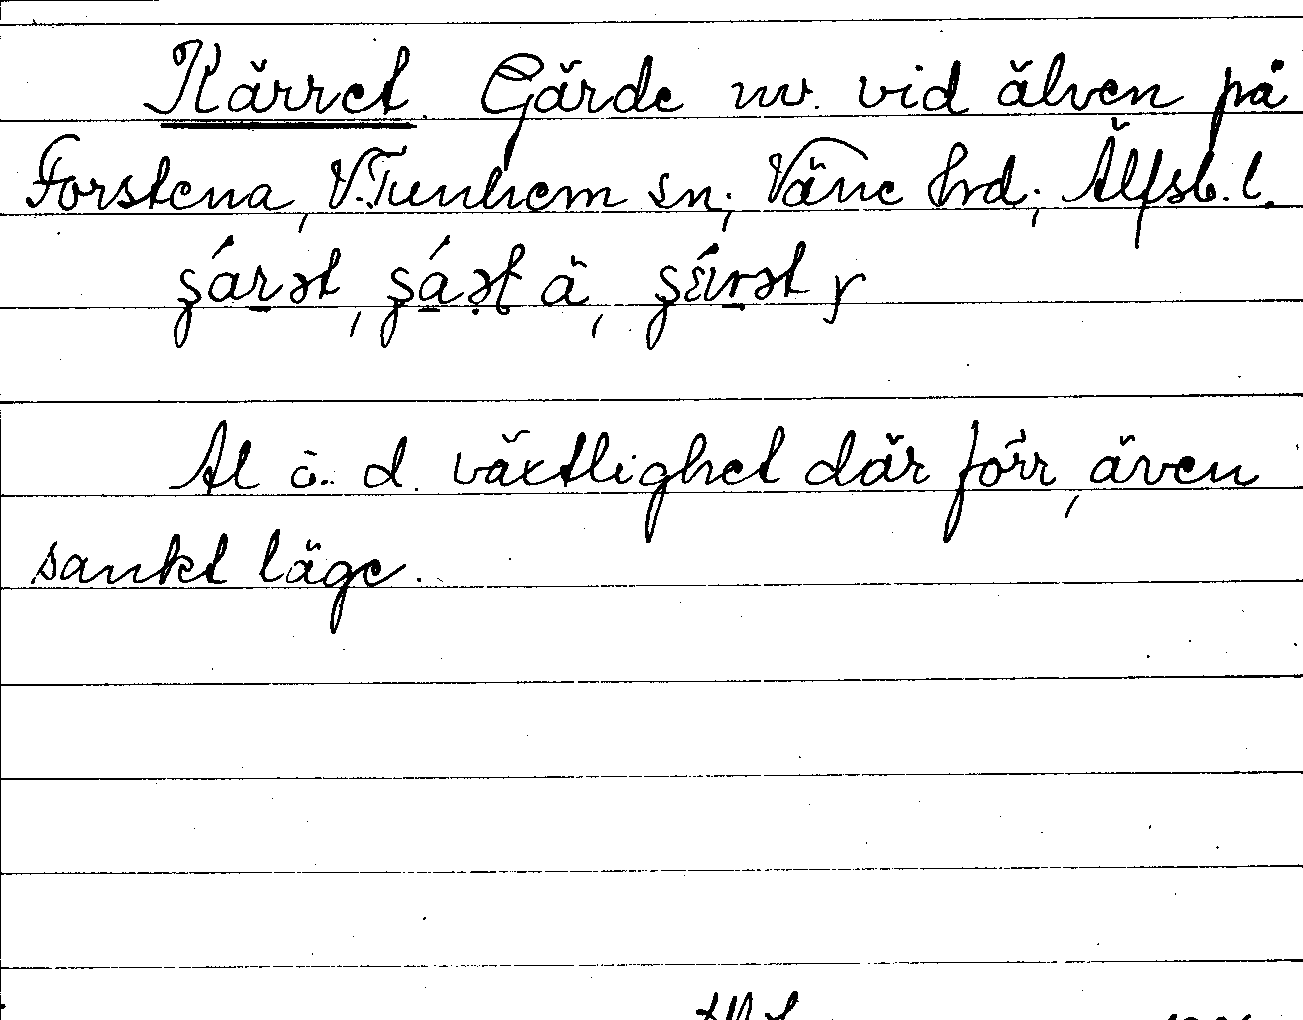 Kärret. Gärde nv. vid älven på
Forstena, V. Tunhem sn; Väne hrd; Älfsb. l.
Al o. d. växtlighet där förr, även
sankt läge.